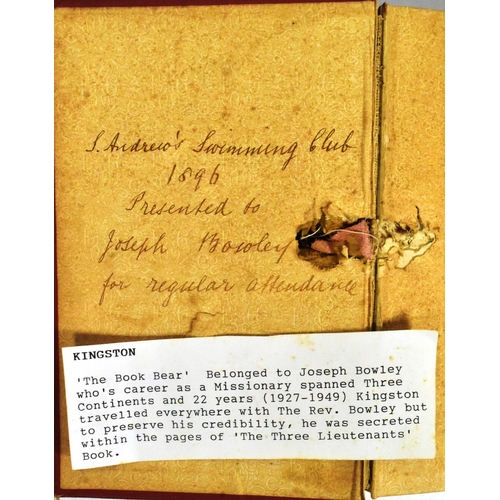 S. Andrew's Swimming Club
1896
Presented to
Joseph Bowley
for regular attendance
KINGSTON
'The Book Bear' Belonged to Joseph Bowley
who's career as a Missionary spanned Three
Continents and 22 years (1927-1949) Kingston
travelled everywhere with The Rev. Bowley but
to preserve his credibility, he was secreted
within the pages of 'The Three Lieutenants'
Book.